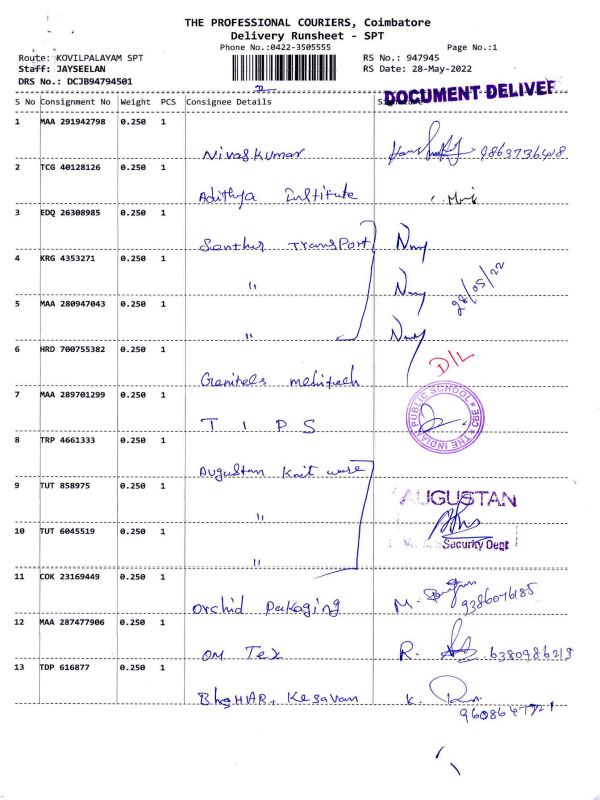 THE PROFESSIONAL COURIERS, Coimbatore
Delivery Runsheet - SPT
Phone No.:0422-3505555 Page No.:1
Route: KOVILPALAYAM SPT RS No.: 947945
Staff: JAYSEELAN RS Date: 28-May-2022
DRS No.: DCJB94794501
DOCUMENT DELIVER
S No Consignment No Weight PCS Consignee Details
1 MAA 291942798 0.250 1
Nivas Kumar
2 TCG 40128126 0.250 1
Adithya Institute
3 EDQ 26308985 0.250 1
Santhus Transport
4 KRG 4353271 0.250 1
"
28/05/22
5 MAA 280947043 0.250 1
"
6 HRD 700755382 0.250 1
D/L
7 MAA 289701299 0.250 1
THE INDIAN PUBLIC SCHOOL CBE
T I P S
8 TRP 4661333 0.250 1
Augustan Knit wear
9 TUT 858975 0.250 1
AUGUSTAN
"
10 TUT 6045519 0.250 1
Security Dept
"
11 COK 23169449 0.250 1
Orchid Packaging M. 9386076185
12 MAA 287477906 0.250 1
OM Tex R. 6380986219
13 TDP 616877 0.250 1
Kesavan K.